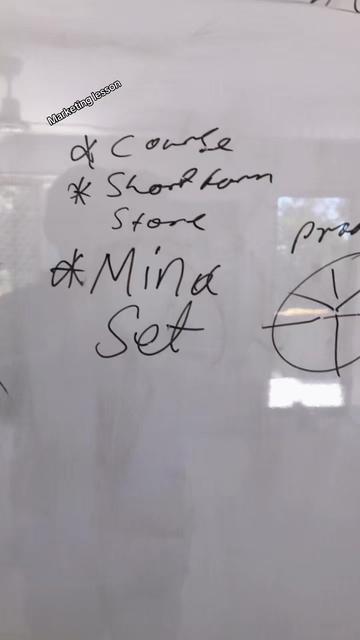 Marketing lesson
* Course
* Short term
Store
* Mind
Set